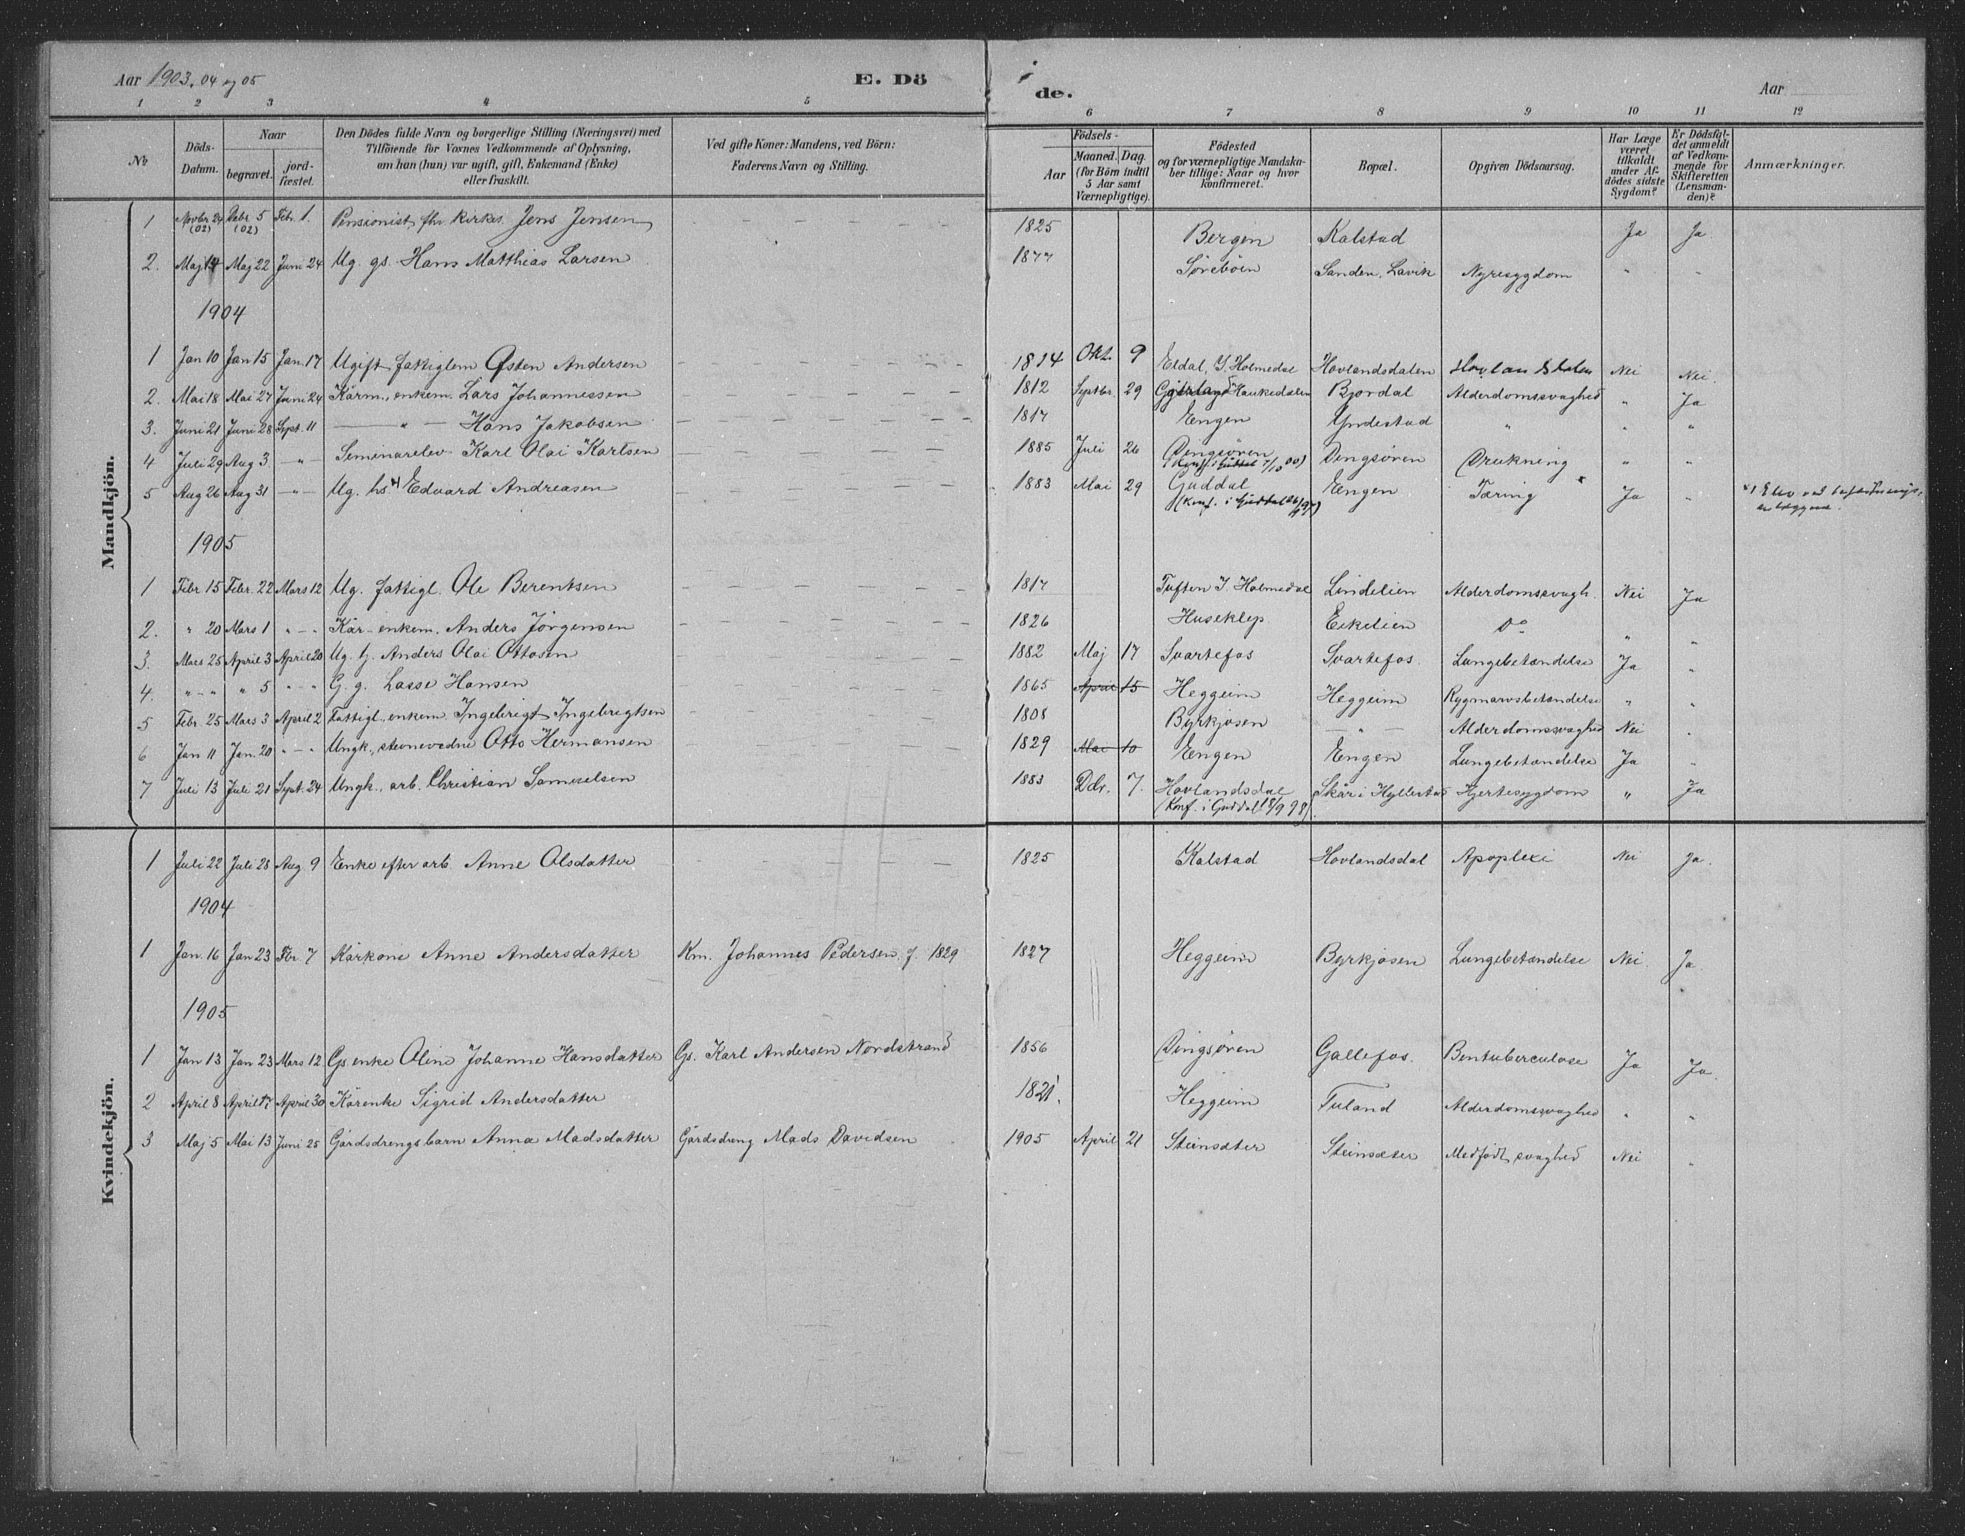 Aar 1903, 04 og 05 E. Dö de. Aar
1 2 3 4 5 6 7 8 9 10 11 12
No Döds-Datum. Naar begravet. jordfæstet. Den Dödes fulde Navn og borgerlige Stilling (Næringsvei) med Tilföiende for Voxnes Vedkommende af Oplysning, om han (hun) var ugift, gift, Enkemand (Enke) eller fraskilt. Ved gifte Koner: Mandens, ved Börn: Faderens Navn og Stilling. Födsels- Aar Maaned. Dag. (for Börn indtil 5 Aar samt Værnepligtige). Födested og for værnepligtige Mandskaber tillige: Naar og hvor konfirmeret. Bopæl. Opgiven Dödsaarsag. Har Læge været tilkaldt under Afdödes sidste Sygdom? Er Dödsfaldet anmeldt af Vedkommende for Skifteretten (Lensmanden)? Anmærkninger.
Mandkjön.
1 Novbr 24 (02) Debr 5 (02) Febr. 1. Pensionist, fhv. kirkes. Jens Jensen 1825 Bergen Kalstad Ja Ja
2. Maj 14 Maj 22 Juni 24 Ug. gs. Hans Matthias Larsen 1877 Söreböen Sanden, Lavik Nyresygdom " "
1904
1 Jan 10 Jan 15 Jan. 17 Ugift fattiglem Østen Andersen 1814 Okt. 9 Eldal, Y. Holmedal Hovlandsdalen Nei Nei.
2. Mai 18 Mai 27 Juni 24 Kårm., enkem. Lars Johannessen 1812 Septbr. 29 Haukedalen Bjordal Alderdomssvaghed " Ja
3. Juni 21 Juni 28 Sept. 11 — " — Hans Jakobsen 1817 Engen Yndestad " " "
4 Juli 29 Aug 3 — " Seminarelev Karl Olai Karlsen 1885 Juli 26 Dingsören Dingsören Drukning " "
(Konf. i Guddal 7/10 00)
5 Aug 26 Aug 31 — " — Ug. hs. x) Edvard Andreasen 1883 Mai 29 Guddal Engen Tæring Ja " x) Elev ved
(Konf. i Guddal 26/9 97)
1905
1 Febr 15 Febr. 22 Mars 12 Ug. fattigl. Ole Berentsen 1817 Tuften Y. Holmedal Lindelien Alderdomssvagh. Nei Ja
2. " 20 Mars 1 " — " Kår- enkem. Anders Jörgensen 1826 Huseklep Eikelien Do " "
3. Mars 25 April 3 April 20 Ug. hj. Anders Olai Ottosen 1882 Maj 17 Svartefos Svartefos. Lungebetændelse Ja "
4. " — " " 5 " — " G. g. Lasse Hansen 1865 April 15 Heggeim Heggeim Rygmarvsbetændelse " "
5 Febr. 25 Mars 3 April 2 Fattigl., enkem Ingebrigt Ingebrigtsen 1808 Byrkjosen — " — Alderdomssvaghed Nei "
6 Jan 11 Jan. 20 " — " Ungk., stevnevidne Otto Hermansen 1829 Mai 10 Engen Engen Lungebetændelse Ja "
7 Juli 13 Juli 21 Sept. 24 Ungk., arb. Christian Samuelsen 1883 Dcbr. 7. Hovlandsdal Skår i Hyllestad Hjertesygdom " Ja
(Konf. i Guddal 18/9 98)
Kvindekjön.
1 Juli 22 Juli 28 Aug 9 Enke efter arb. Anne Olsdatter 1825 Kalstad Hovlandsdal Apoplexi Nei Ja.
1904
1 Jan. 16 Jan 23 Fbr. 7 Kårkone Anne Andersdatter Km. Johannes Pedersen f. 1829 1827 Heggeim Byrkjosen Lungebetændelse Nei Ja
1905
1 Jan 13 Jan 23 Mars 12 Gs. enke Oline Johanne Hansdatter Gs. Karl Andersen Nordstrand 1856 Dingsören Gallefos. Bentuberculose Ja Ja.
2 April 8 April 17 April 30 Kårenke Sigrid Andersdatter 1821. Heggeim Tuland Alderdomssvaghed " "
3 Maj 5 Mai 13 Juni 25 Gårdsdrengsbarn Anna Madsdatter Gårdsdreng Mads Davidsen 1905 April 21 Steinsæter Steinsæter Medfödt svaghed Nei "